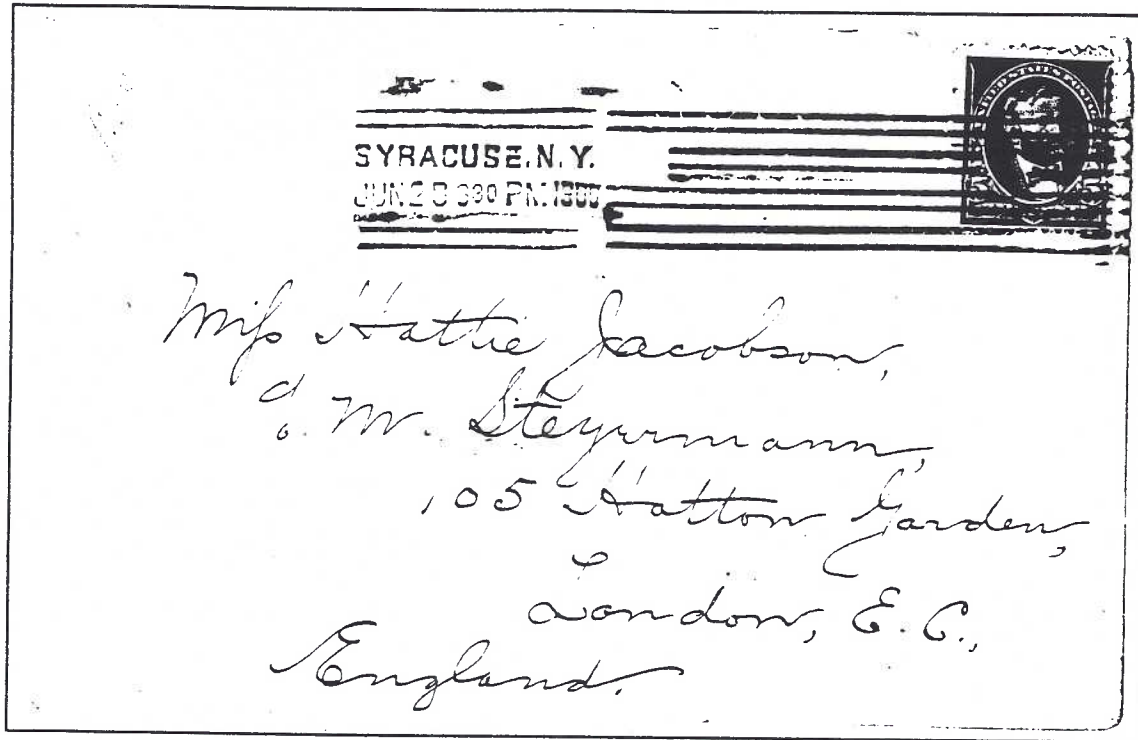 SYRACUSE. N. Y.
JUN 2 330 PM. 1900
UNITED STATES POSTAGE
Miss Hattie Jacobson,
c/o. M. Steyermann,
105 Hatton Garden,
London, E. C.,
England.